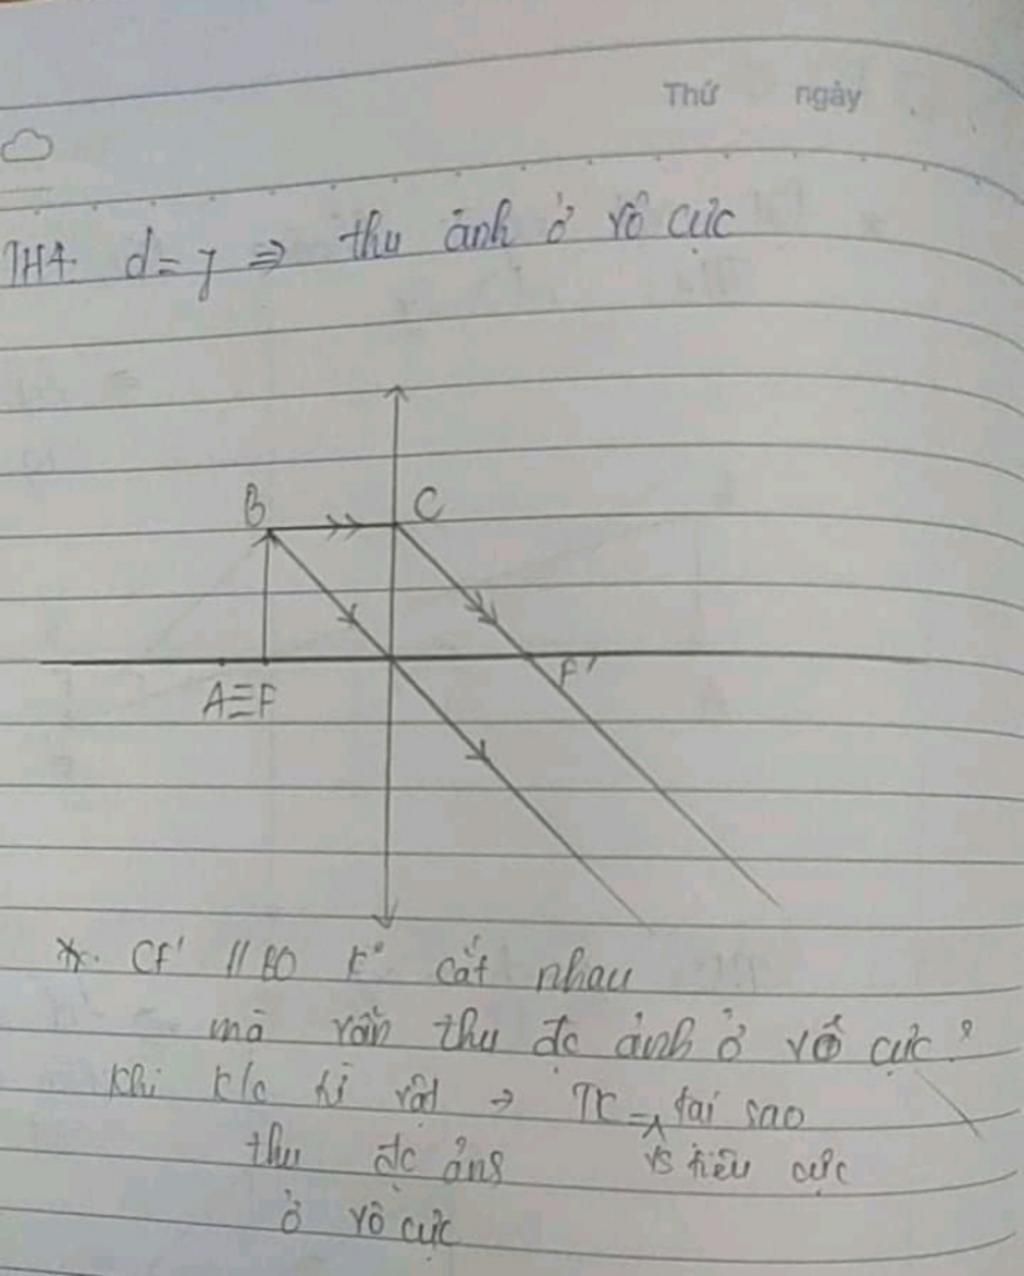 Thứ ngày
TH4: d = f => thu ảnh ở vô cực
B C
A≡F F'
*. CF' // BO k° cắt nhau
mà vẫn thu đc ảnh ở vô cực?
Khi k/c từ vật → TK = tại sao
thu đc ảng vs tiêu cực
ở vô cực